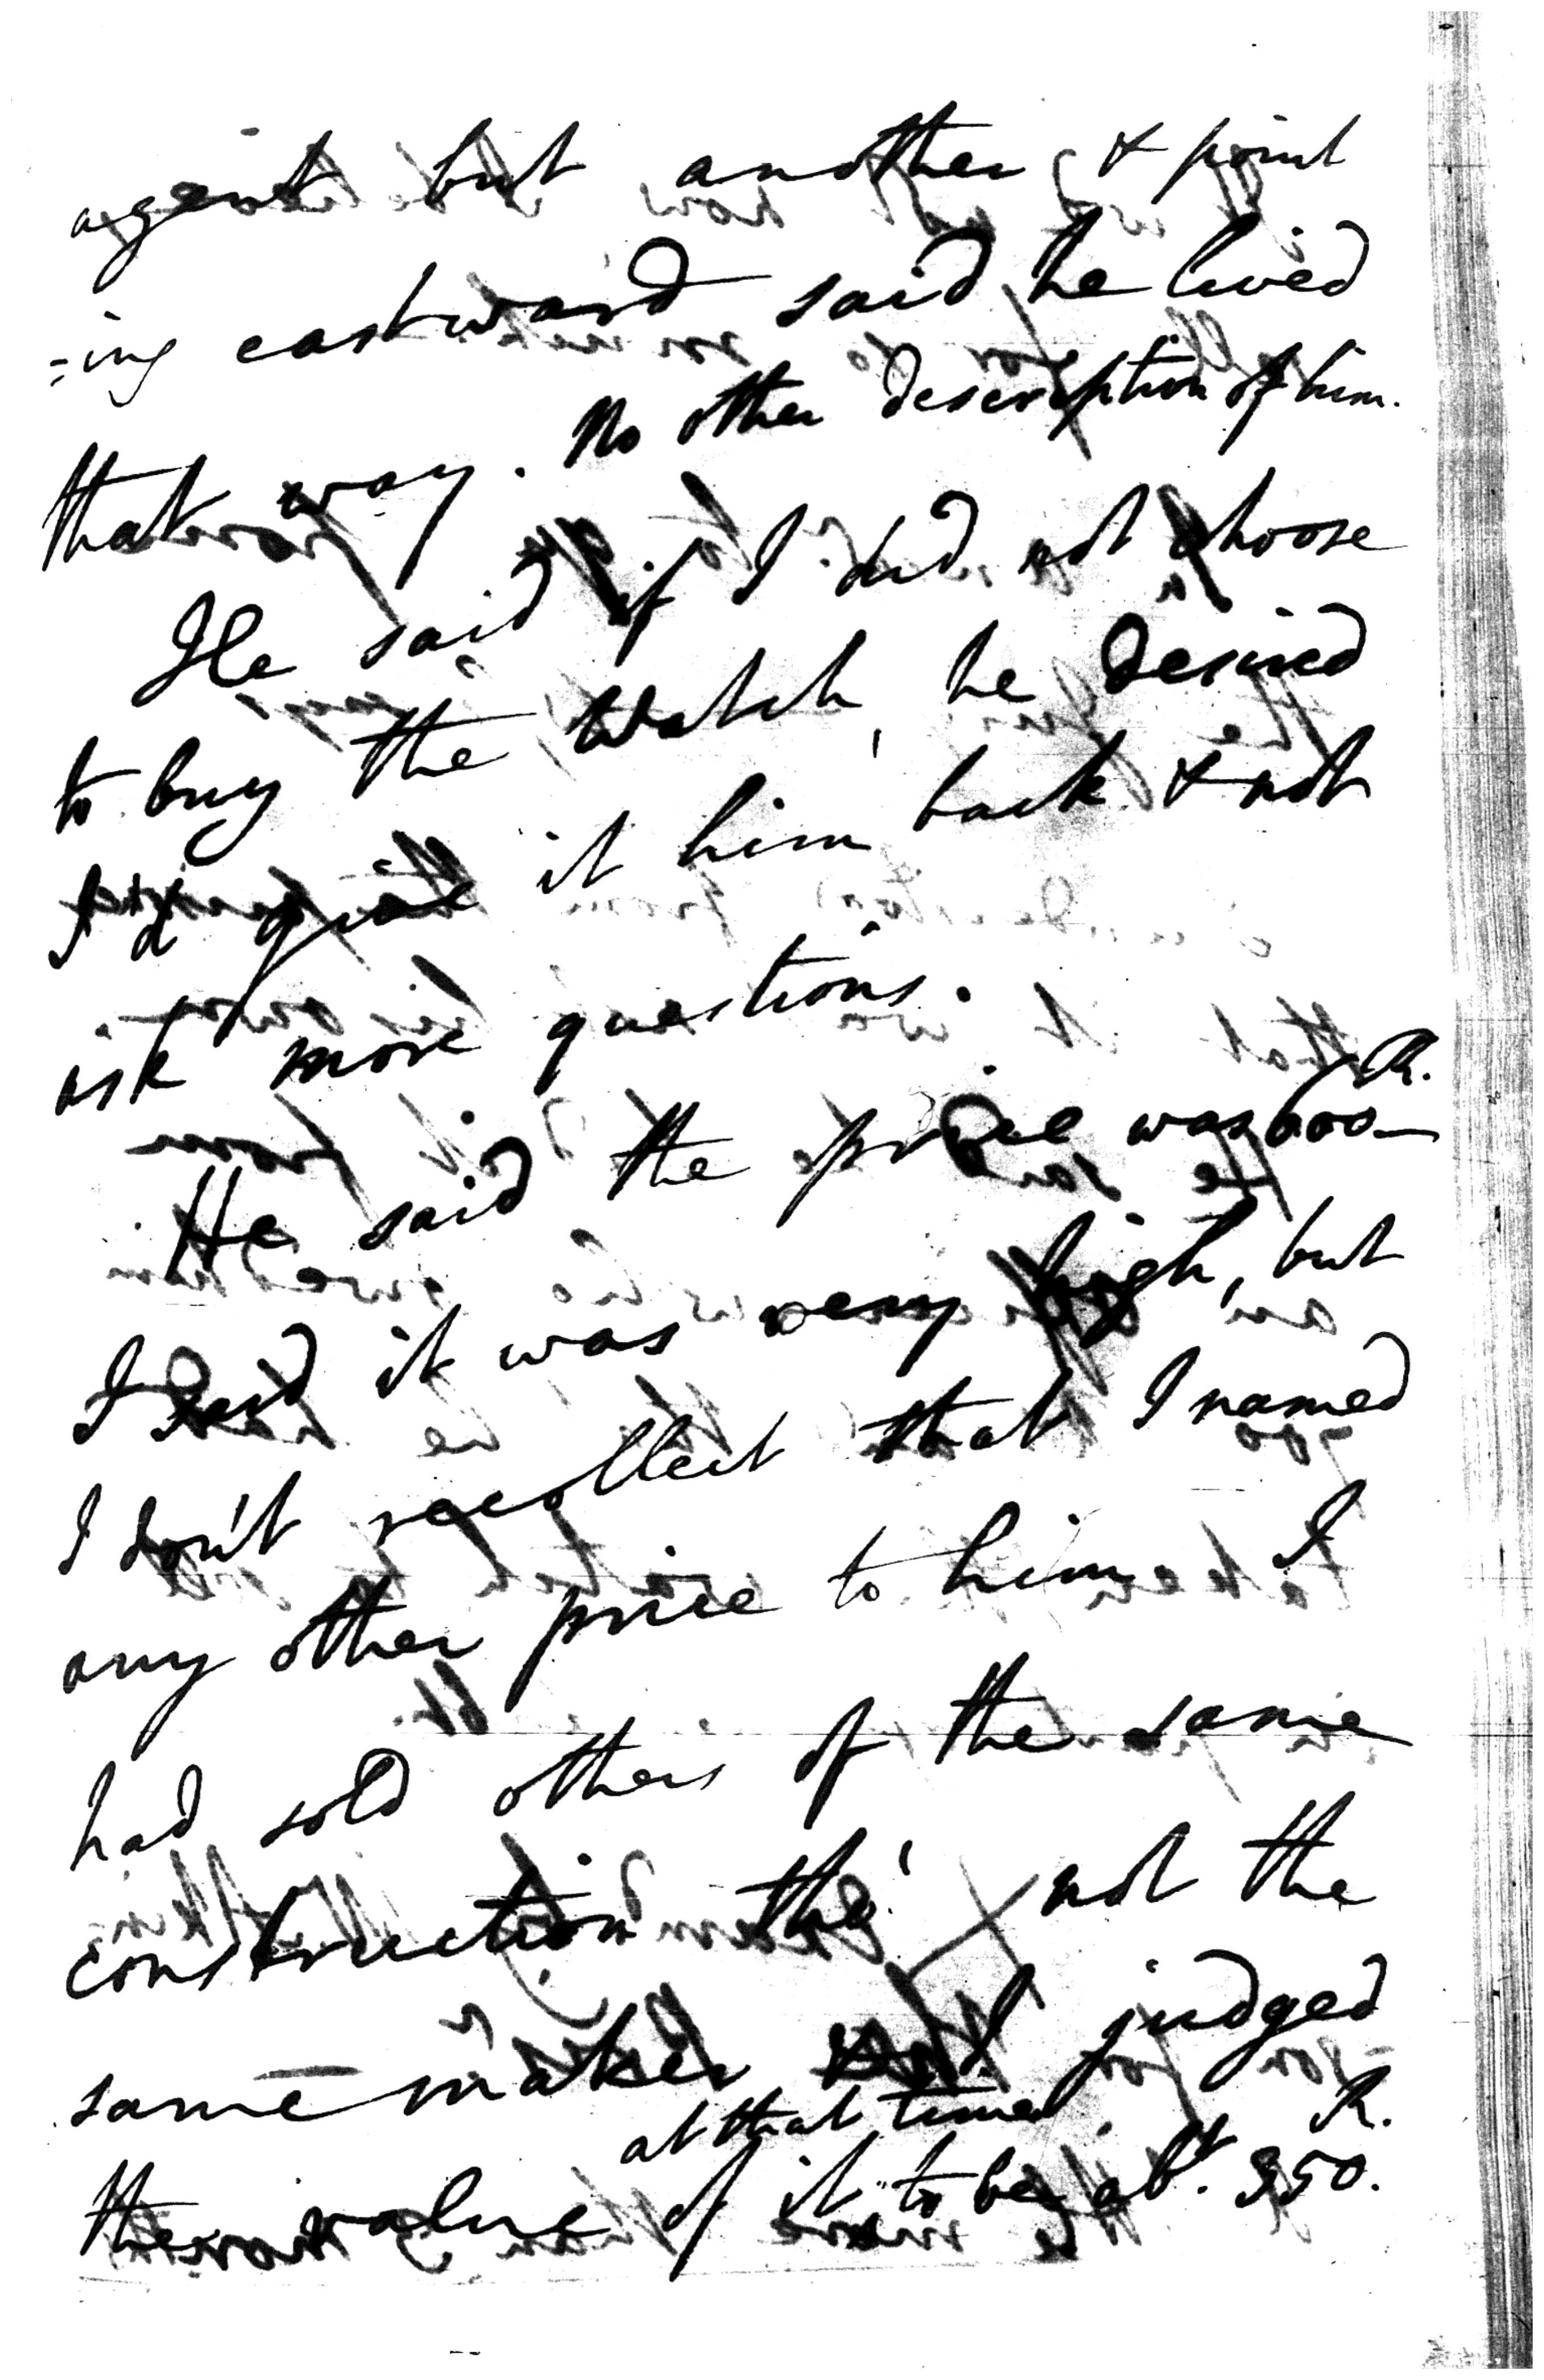 agent but another & point
=ing eastward said he lived
that way. No other description of him.
He said if I did not choose
to buy the Watch, he desired
I'd give it him back & not
ask more questions.
He said the price was 600 R.
I said it was very high, but
I don't recollect that I named
any other price to him I
had sold others of the same
construction tho' not the
same maker I judged
the value of it at that time to be abt. 350. R.